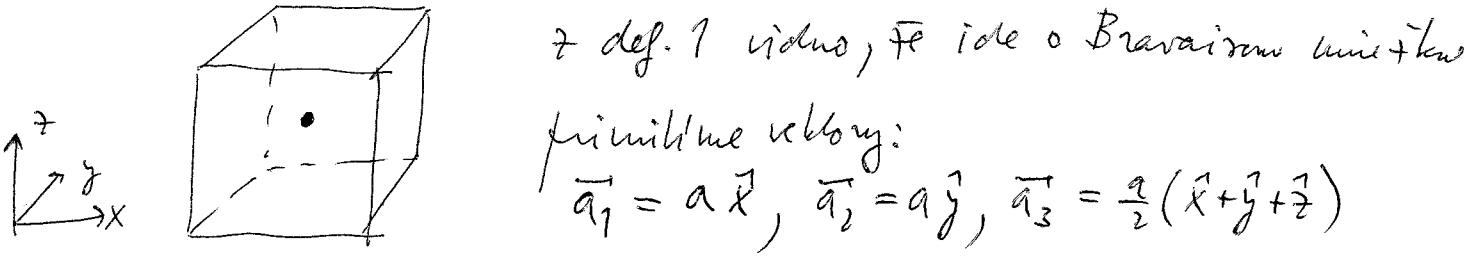 z def. 1 vidno, že ide o Bravaisovu mriežku
primitívne vektory:
z
y
x
$\vec{a_1} = a\hat{x}, \vec{a_2} = a\hat{y}, \vec{a_3} = \frac{a}{2}(\hat{x}+\hat{y}+\hat{z})$